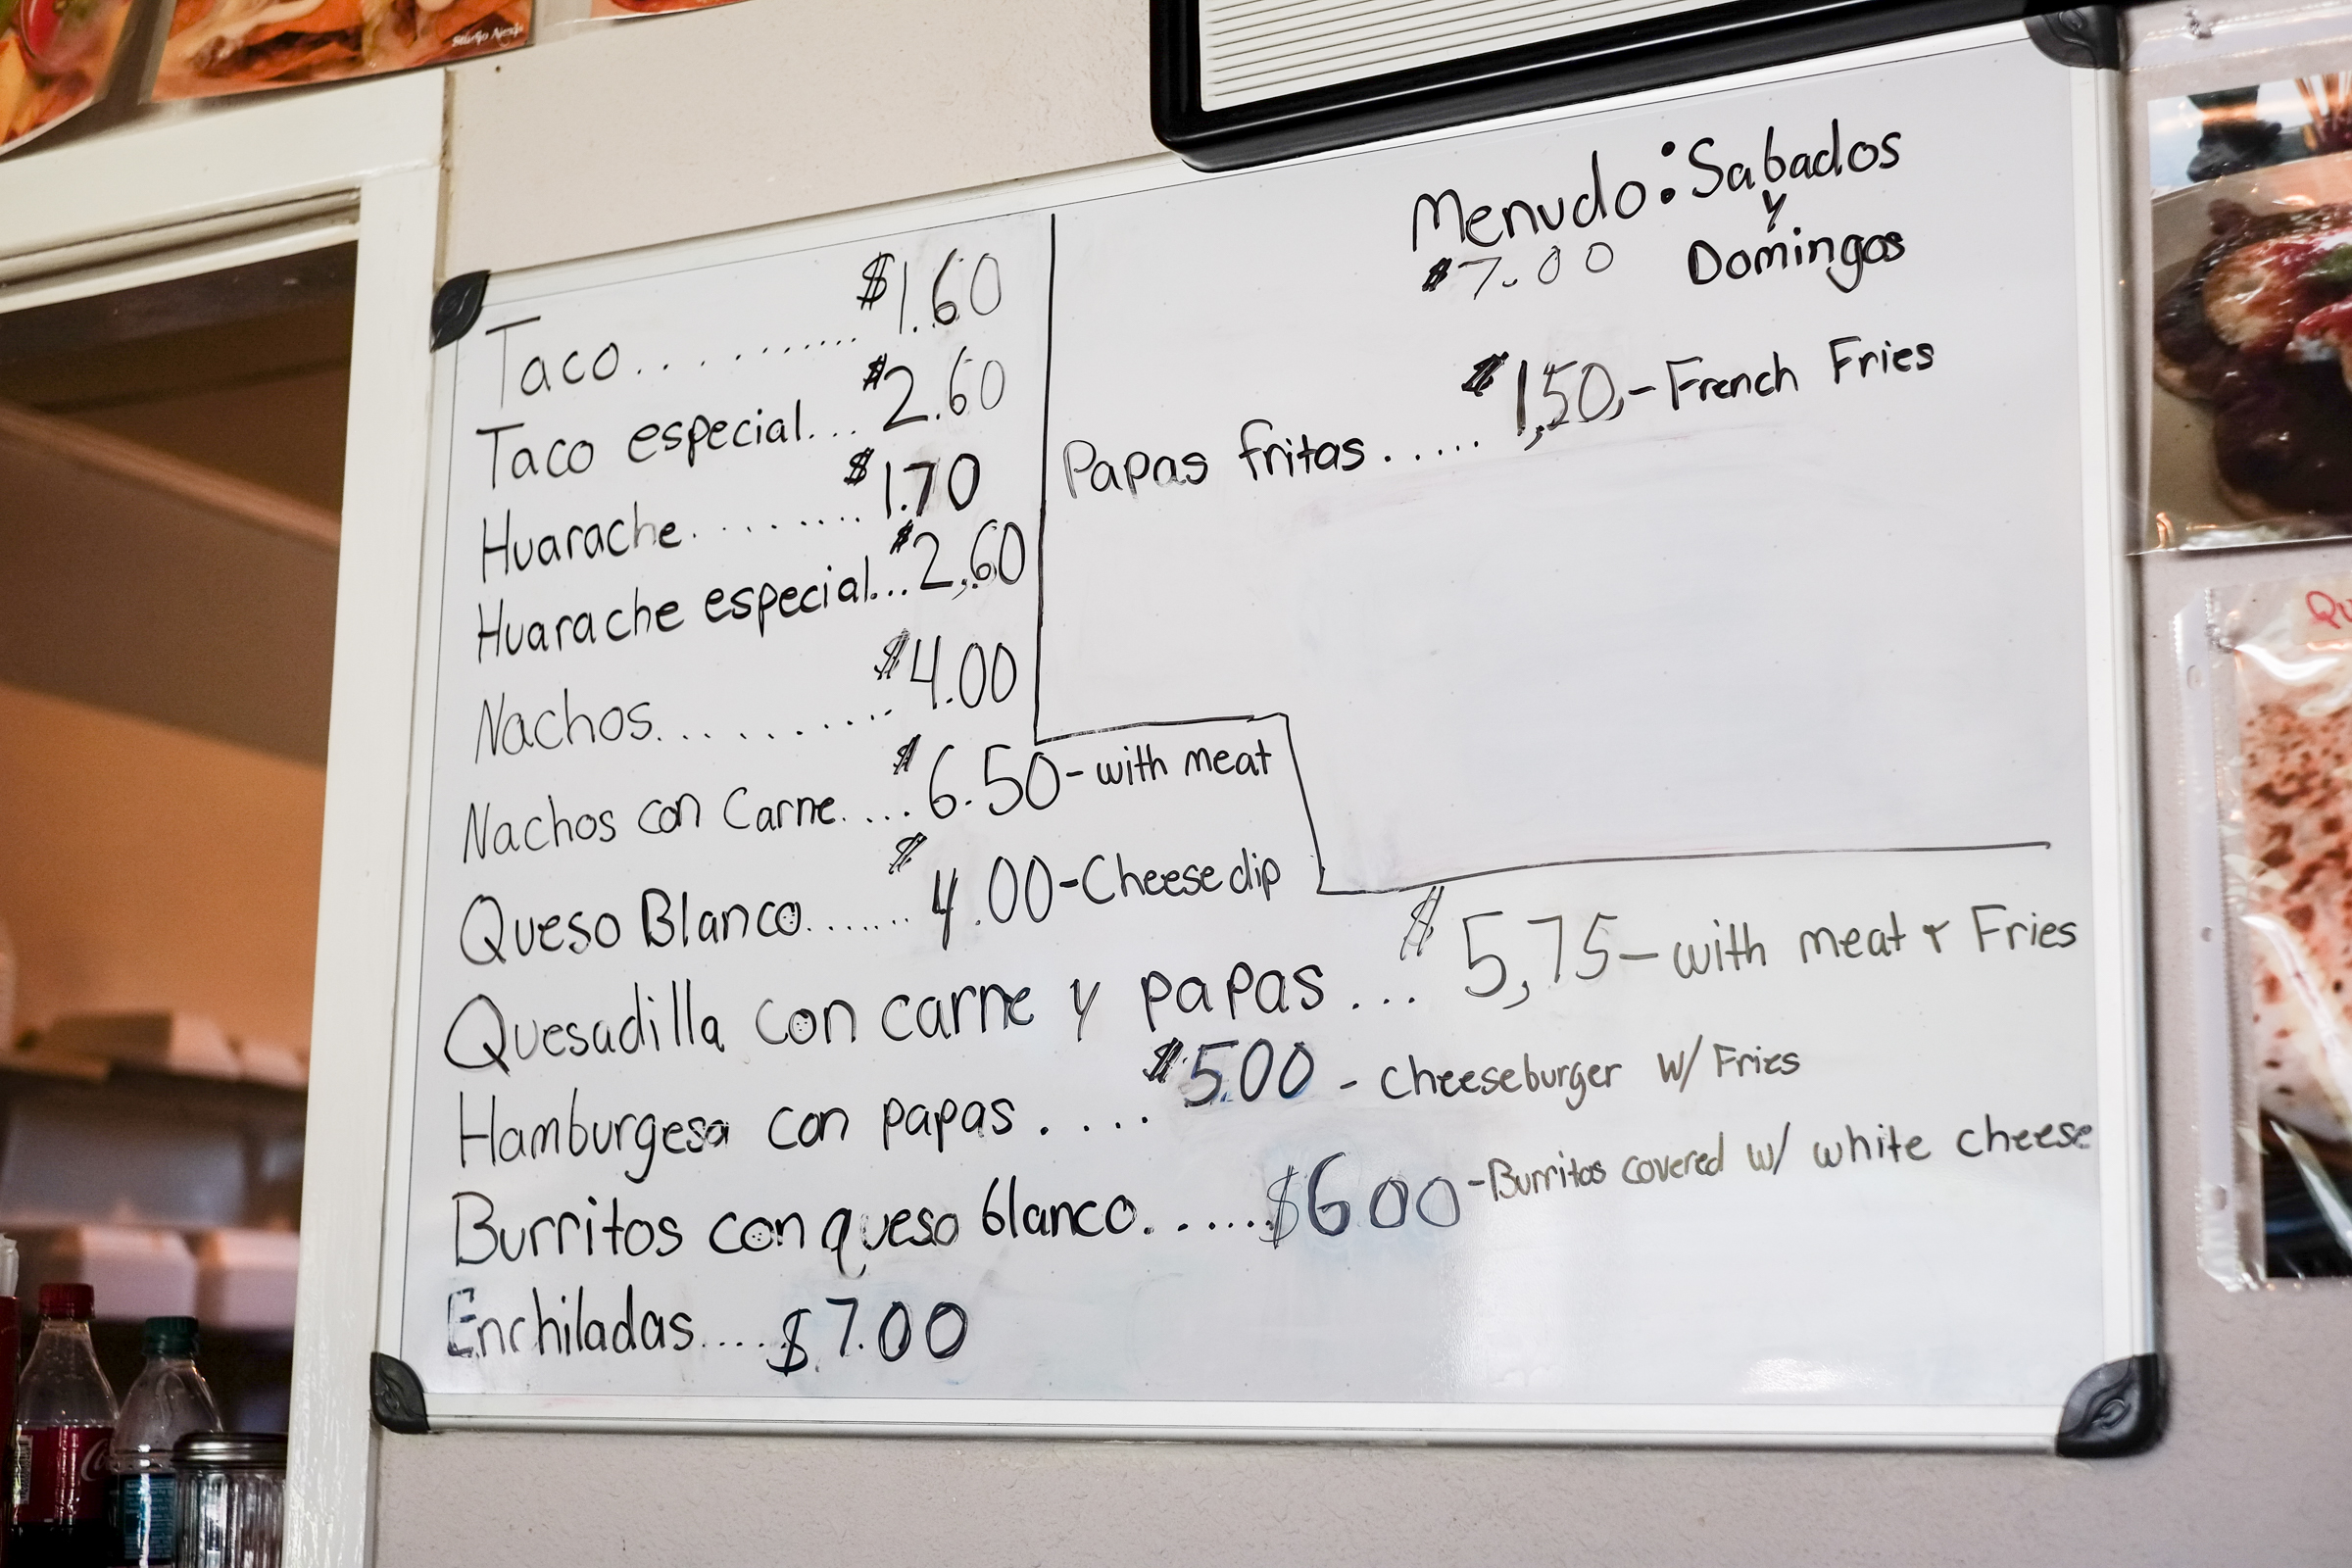 Studio Nesh
Menudo: Sabados
y
$7.00 Domingos
Taco.............$1.60
Taco especial... $2.60
Huarache......... $1.70
Huarache especial... $2,60
Nachos.......... $4.00
Nachos con Carne.... $6.50 - with meat
Queso Blanco....... $4.00 - Cheese dip
Papas fritas..... $1,50,- French Fries
Quesadilla con carne y papas... $5,75 - with meat & Fries
Hamburgesa con papas.... $5.00 - cheeseburger w/ Fries
Burritos con queso blanco...... $6 00 - Burritos covered w/ white cheese
Enchiladas.... $7.00